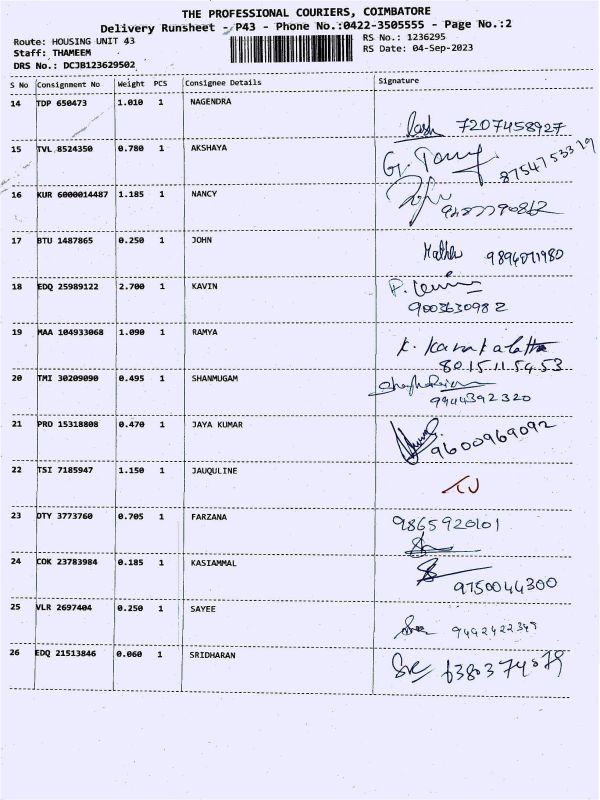 THE PROFESSIONAL COURIERS, COIMBATORE
Delivery Runsheet - P43 - Phone No.:0422-3505555 - Page No.:2
Route: HOUSING UNIT 43 RS No.: 1236295
Staff: THAMEEM RS Date: 04-Sep-2023
DRS No.: DCJB123629502
S No Consignment No Weight PCS Consignee Details Signature
14 TDP 650473 1.010 1 NAGENDRA
7207458927
15 TVL 8524350 0.780 1 AKSHAYA
8754753319
16 KUR 6000014487 1.185 1 NANCY
17 BTU 1487865 0.250 1 JOHN
9894071980
18 EDQ 25989122 2.700 1 KAVIN
9003630982
19 MAA 104933068 1.090 1 RAMYA
8015115453
20 TMI 30209090 0.495 1 SHANMUGAM
9944392320
21 PRO 15318808 0.470 1 JAYA KUMAR
9600969092
22 TSI 7185947 1.150 1 JAUQULINE
23 DTY 3773760 0.705 1 FARZANA
9865920101
24 COK 23783984 0.185 1 KASIAMMAL
9750044300
25 VLR 2697404 0.250 1 SAYEE
26 EDQ 21513846 0.060 1 SRIDHARAN